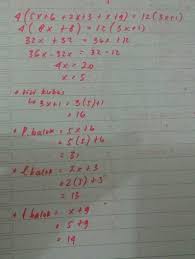 4(5x+6+2x+3+x+9) = 12(3x+1)
4(8x+8) = 12(3x+1)
32x+32 = 36x+12
36x-32x = 32-12
4x = 20
x = 5
kubus
3x+1 = 3(5)+1
= 16
• P. balok = 5x+6
= 5(5)+6
= 31
• l. balok = 2x+3
= 2(5)+3
= 13
• t balok = x+9
= 5+9
= 14